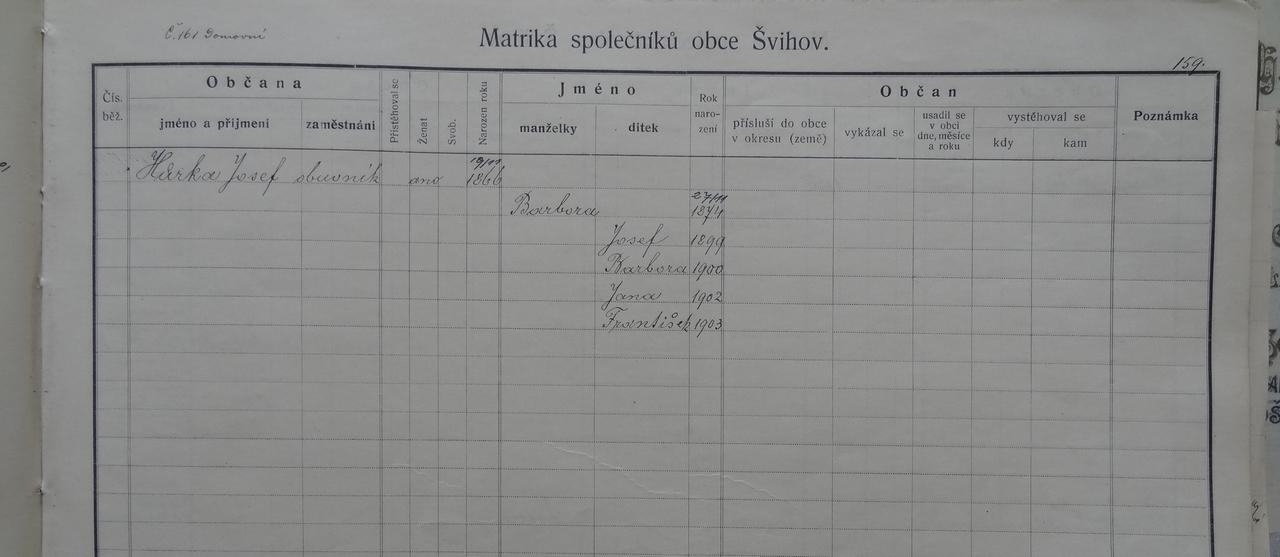 Č. 161 Domovní
Matrika společníků obce Švihov.
159.
Čís. běž.
Občana
jméno a příjmení
zaměstnání
Přistěhoval se
Ženat
Svob.
Narozen roku
Jméno
manželky
dítek
Rok naro- zení
Občan
přísluší do obce v okresu (země)
vykázal se
usadil se v obci dne, měsíce a roku
vystěhoval se
kdy
kam
Poznámka
Hůrka Josef obuvník ano 19/11 1866
Barbora 27/11 1874
Josef 1899
Barbora 1900
Jana 1902
František 1903